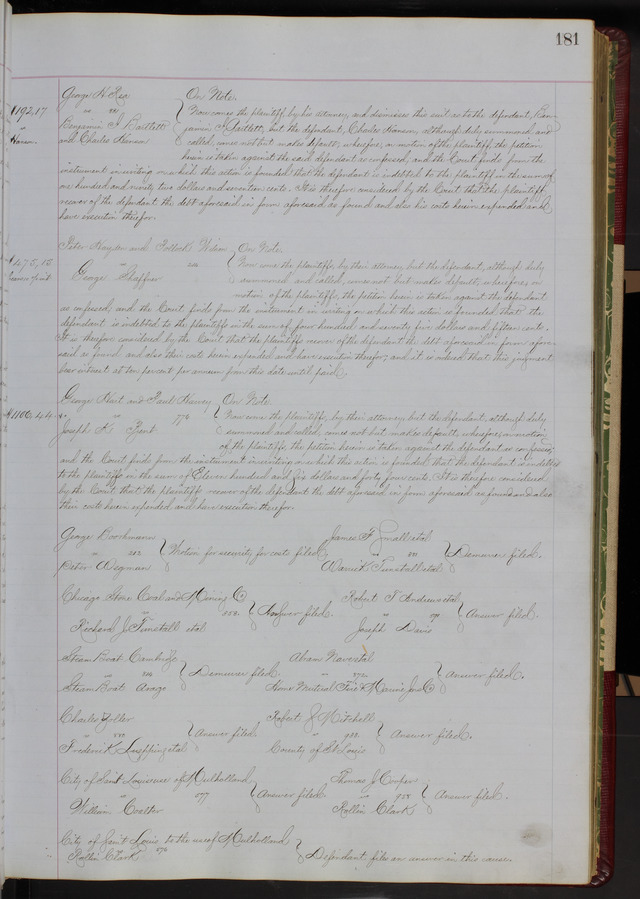 181
George H. Rea
" vs
Benjamin F. Bartlett
and Charles Hansen
$192.17
vs
Hansen.
On Note.
Now comes the plaintiff, by his attorney, and dismisses this suit as to the defendant, Ben-
jamin F. Bartlett, but the defendant, Charles Hansen, although duly summoned, and
called, comes not but makes default; wherefore, on motion of the plaintiff, the petition
herein is taken against the said defendant as confessed, and the Court finds from the
instrument in writing on which this action is founded that the defendant is indebted to the plaintiff in the sum of
one hundred and ninety two dollars and seventeen cents. It is therefore considered by the Court that the plaintiff
recover of the defendant the debt aforesaid in form aforesaid as found and also his costs herein expended and
have execution therefor.
Peter and
George Shaffner
$475.15
On Note.
Now come the plaintiffs, by their attorney, but the defendant, although duly
summoned and called, comes not but makes default; wherefore, on
motion of the plaintiffs, the petition herein is taken against the defendant
as confessed, and the Court finds from the instrument in writing on which this action is founded, that the
defendant is indebted to the plaintiffs in the sum of four hundred and seventy five dollars and fifteen cents.
It is therefore considered by the Court that the plaintiffs recover of the defendant the debt aforesaid in form afore-
said as found and also their costs herein expended and have execution therefor; and it is ordered that this judgment
bear interest at ten percent per annum from this date until paid.
George Hunt and
" 776
Joseph K.
$1106.44
On Note.
Now come the plaintiffs, by their attorney, but the defendant, although duly
summoned and called, comes not but makes default; wherefore, on motion
of the plaintiffs, the petition herein is taken against the defendant as confessed,
and the Court finds from the instrument in writing on which this action is founded that the defendant is indebted
to the plaintiffs in the sum of Eleven hundred and six dollars and forty four cents. It is therefore considered
by the Court that the plaintiffs recover of the defendant the debt aforesaid in form aforesaid as found and also
their costs herein expended and have execution therefor.
George
Peter Wegman
Motion for security for costs filed.
James F. Smalls et al
Warrick Tunstall et al
Demurrer filed.
Chicago Coal and Mining Co
"
Richard J. Tunstall et al
Answer filed.
Robert T. Anderson et al
Joseph Davis
Answer filed.
Steam Boat Cambridge
"
Steam Boat
Demurrer filed.
Abram Nave et al
" 872
Home Mutual Fire & Marine Ins Co
Answer filed.
Charles
"
Frederick et al
Answer filed.
Robert J. Mitchell
"
County of St. Louis
Answer filed.
City of Saint Louis use of Mulholland
" 577
William Coulter
Answer filed.
Thomas J. Cooper
" 958
Rollin Clark
Answer filed.
City of Saint Louis to the use of Mulholland
Rollin Clark 576
Defendant files an answer in this cause.